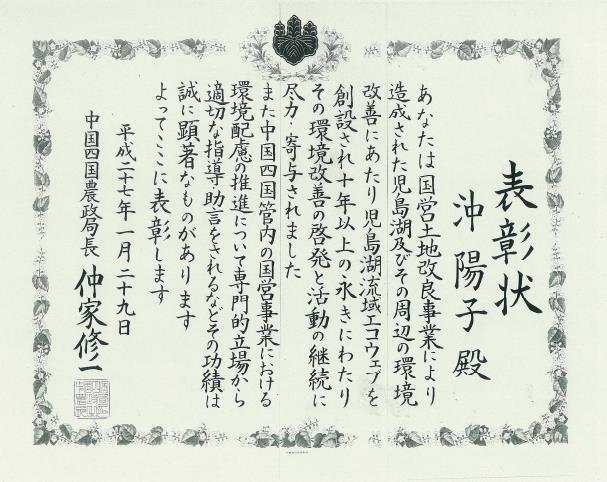 表彰状
沖陽子殿
あなたは国営土地改良事業により
造成された児島湖及びその周辺の環境
改善にあたり児島湖流域エコウェブを
創設され十年以上の永きにわたり
その環境改善の啓発と活動の継続に
尽力し寄与されました
また中国四国管内の国営事業における
環境配慮の推進について専門的立場から
適切な指導助言をされるなどその功績は
誠に顕著なものがあります
よってここに表彰します
平成二十七年一月二十九日
中国四国農政局長 仲家修一